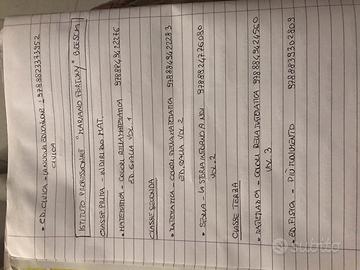 • ED. CIVICA - LA NUOVA EDUCAZIONE : 9788823373952
CIVICA
ISTITUTO PROFESSIONALE "MARIANO FORTUNY" BRESCIA
CLASSE PRIMA - INDIRIZZO MAT.
• MATEMATICA - COLORI DELLA MATEMATICA 9788849422276
ED. GIALLA VOL 1
CLASSE SECONDA
• MATEMATICA - COLORI DELLA MATEMATICA 9788849422283
ED. GIALLA VOL 2
• STORIA - LA STORIA INTORNO A NOI 9788924776080
VOL. 2
CLASSE TERZA
• MATEMATICA - COLORI DELLA MATEMATICA 9788849424560
VOL 3
• ED. FISICA - PIÙ MOVIMENTO 9788839302809
Subito